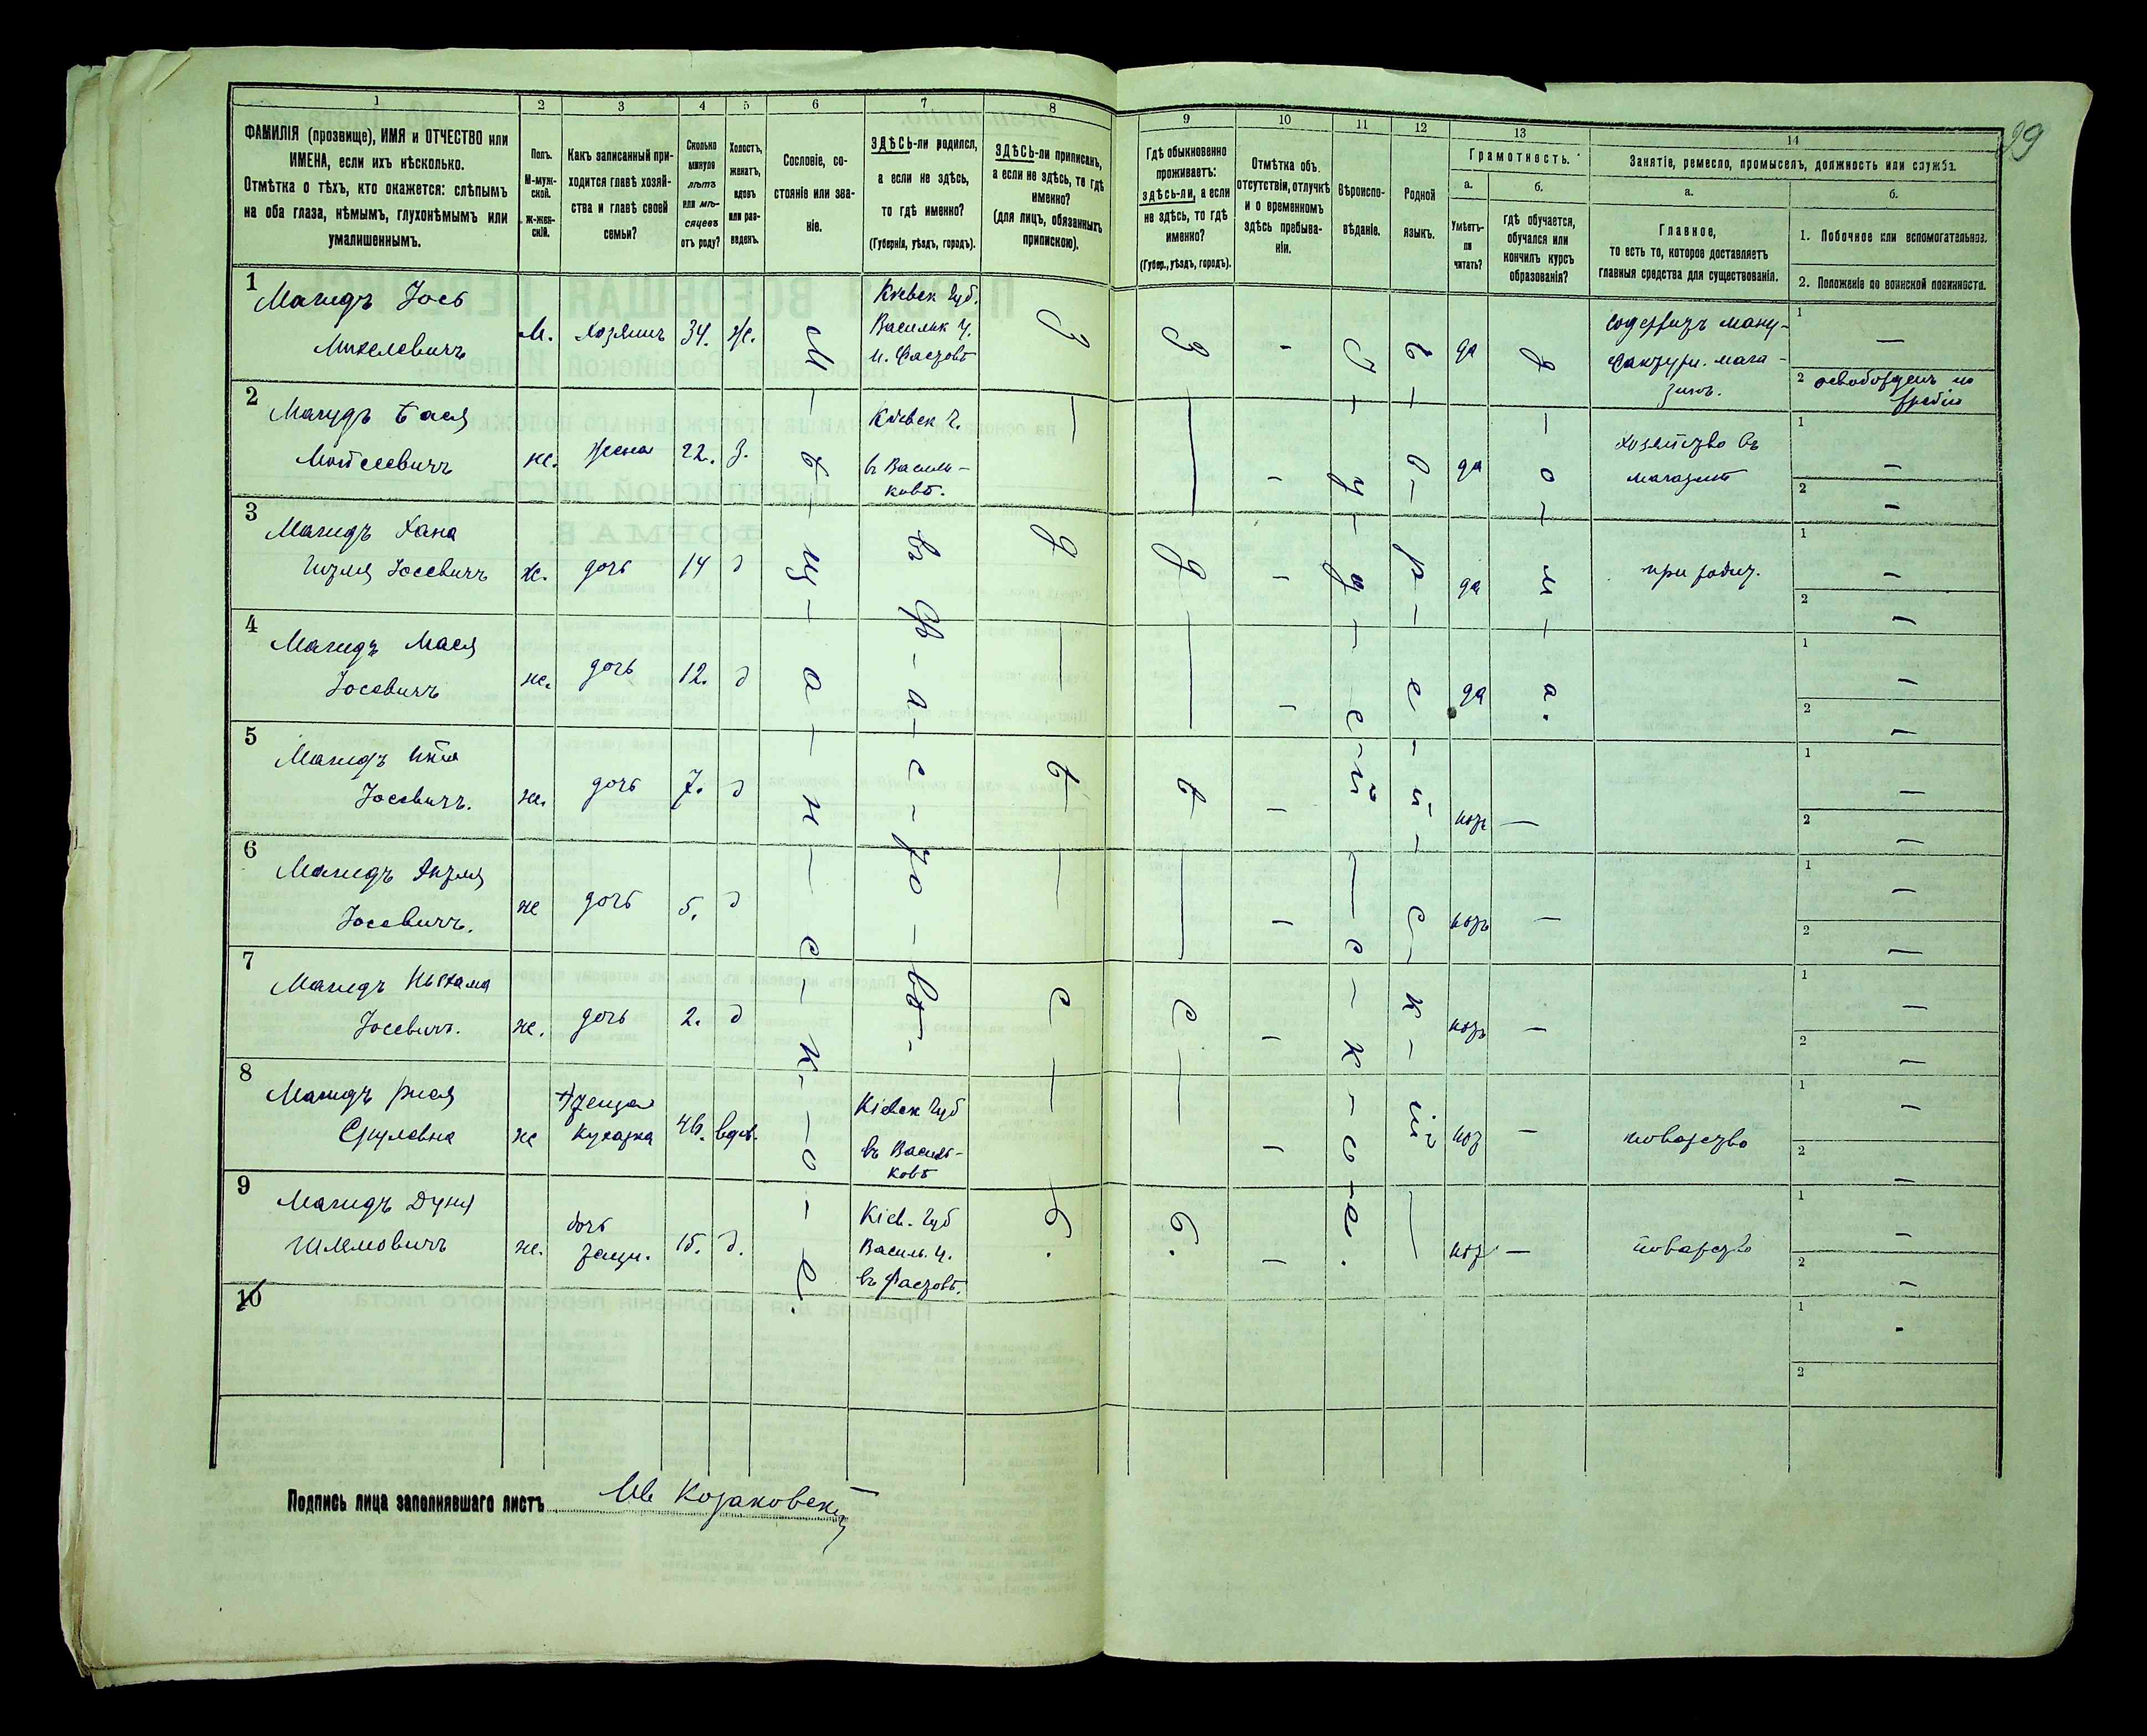 99
1 2 3 4 5 6 7 8 9 10 11 12 13 14
ФАМИЛІЯ (прозвище), ИМЯ и ОТЧЕСТВО или
ИМЕНА, если ихъ нѣсколько.
Отмѣтка о тѣхъ, кто окажется: слѣпымъ
на оба глаза, нѣмымъ, глухонѣмымъ или
умалишеннымъ.
Полъ.
М-муж-
ской.
Ж-жен-
скій.
Какъ записанный при-
ходится главѣ хозяй-
ства и главѣ своей
семьи?
Сколько
минуло
лѣтъ
или мѣ-
сяцевъ
отъ роду?
Холостъ,
женатъ,
вдовъ
или раз-
веденъ.
Сословіе, со-
стояніе или зва-
ніе.
ЗДѢСЬ-ли родился,
а если не здѣсь,
то гдѣ именно?
(Губернія, уѣздъ, городъ).
ЗДѢСЬ-ли приписанъ,
а если не здѣсь, то гдѣ
именно?
(для лицъ, обязанныхъ
припискою).
Гдѣ обыкновенно
проживаетъ:
здѣсь-ли, а если
не здѣсь, то гдѣ
именно?
(Губер., уѣздъ, городъ).
Отмѣтка объ
отсутствіи, отлучкѣ
и о временномъ
здѣсь пребыва-
ніи.
Вѣроиспо-
вѣданіе.
Родной
языкъ.
Грамотность.
а.
Умѣетъ-
ли
читать?
б.
гдѣ обучается,
обучался или
кончилъ курсъ
образованія?
Занятіе, ремесло, промыселъ, должность или служба.
а.
Главное,
то есть то, которое доставляетъ
главныя средства для существованія.
б.
1. Побочное или вспомогательное.
2. Положеніе по воинской повинности.
1
Магидъ Іось
Михелевичъ
М. хозяинъ 34. Ж.
Кіевск Губ.
Васильк у.
м. Фастовѣ
да
содержитъ ману-
фактурн. мага-
зинъ.
1 —
2 освобожденъ по
жребію
2
Магидъ Бася
Мойсеевичъ
же. жена 22. з.
Кіевск г.
въ Василь-
ковѣ.
- да
хозяйство въ
магазинѣ
1 —
2 —
3
Магидъ Хана
Іосевичъ
ж. дочь 14 д
- да
при родит.
1 —
2 —
4
Магидъ Мася
Іосевичъ
же. дочь 12. д
- да
1 —
2 —
5
Магидъ
Іосевичъ.
же. дочь 7. д
- нѣтъ —
1 —
2 —
6
Магидъ
Іосевичъ.
же дочь 5. д
- нѣтъ —
1 —
2 —
7
Магидъ
Іосевичъ.
же. дочь 2. д
- нѣтъ —
1 —
2 —
8
Магидъ
Срулевна
же
кухарка 46. вдов.
Кіевск Губ
въ Василь-
ковѣ
- нѣт —
поварство
1 —
2 —
9
Магидъ Дуня
Шлемовичъ
же. дочь 15. д.
Кіев. Губ
Василь. у.
въ Фастовѣ.
- нѣт —
поварство
1 —
2 —
10
1 -
2
м-ѣ-щ-а-н-с-к-о-е.
въ Ф-а-с-то-вѣ.
З-д-ѣ-с-ь.
З-д-ѣ-с-ь.
І-у-д-е-й-с-к-о-е.
Е-в-р-е-й-с-к-ій
д-о-м-а.
Подпись лица заполнявшаго листъ Козаковскій